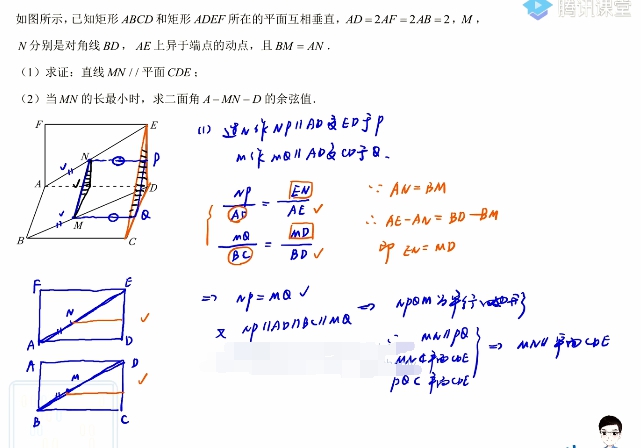 腾讯课堂
如图所示，已知矩形 ABCD 和矩形 ADEF 所在的平面互相垂直，AD = 2AF = 2AB = 2，M，
N 分别是对角线 BD，AE 上异于端点的动点，且 BM = AN．
（1）求证：直线 MN // 平面 CDE；
（2）当 MN 的长最小时，求二面角 A－MN－D 的余弦值．
F E
N P
A D
M Q
B C
(1) 过N作 NP∥AD交ED于P
M作 MQ∥AD交CD于Q.
NP/AD = EN/AE ✓
MQ/BC = MD/BD ✓
∵ AN=BM
∴ AE-AN=BD-BM
即 EN=MD
⇒ NP=MQ ✓
又 NP∥AD∥BC∥MQ
⇒ NPQM为平行四边形
∴ MN∥PQ
MN⊄平面CDE
PQ⊂平面CDE
⇒ MN∥平面CDE
F E
N
A D
A D
M
B C